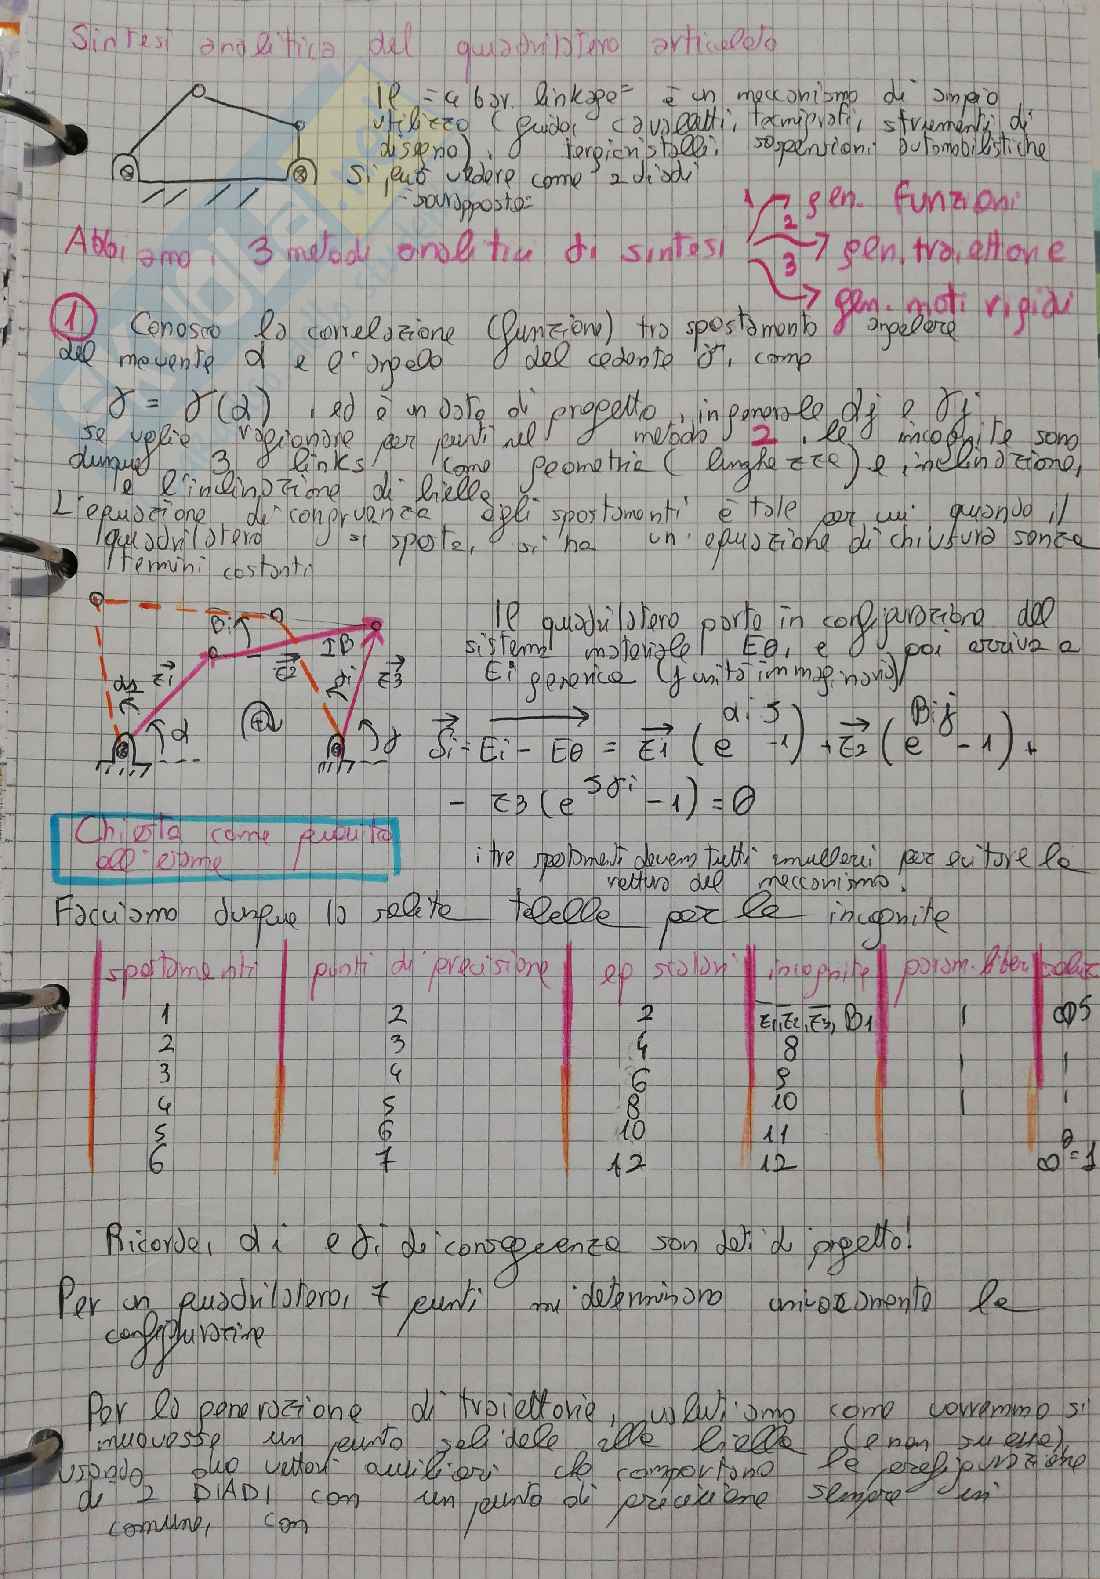 Sintesi analitica del quadrilatero articolato
Il "4 bar linkage" è un meccanismo di ampio
utilizzo (guida, cavalletti, tecnigrafi, strumenti di
disegno), tergicristalli, sospensioni automobilistiche
Si può vedere come 2 diadi
sovrapposte
Abbiamo 3 metodi analitici di sintesi
1 gen. funzioni
2 gen. traiettorie
3 gen. moti rigidi
1 Conosco la correlazione (funzione) tra spostamento angolare
del movente α e l'angolo del cedente γ, come
γ = γ(α), ed è un dato di progetto, in generale αj e γj
se voglio ragionare per punti nel metodo 2, le incognite sono
dunque 3 links come geometria (lunghezze) e inclinazione,
e l'inclinazione di biella
L'equazione di congruenza degli spostamenti è tale per cui quando il
quadrilatero si sposta, si ha un'equazione di chiusura senza
termini costanti
Il quadrilatero parte in configurazione del
sistema materiale E0, e poi arriva a
Ei generica (j unità immaginaria)
Bi IB
αi z1 z2 γi z3
α γ
δi = Ei - E0 = z1 (e^αij - 1) + z2 (e^Bij - 1) +
- z3 (e^jγi - 1) = 0
Chiesta come
all'esame
i tre spostamenti devono tutti annullarsi per evitare la
rottura del meccanismo.
Facciamo dunque la solita tabella per le incognite
spostamenti punti di precisione eq scalari incognite param. liberi soluz
1 2 2 z1, z2, z3, B1 ∞5
2 3 4 8
3 4 6 9
4 5 8 10
5 6 10 11
6 7 12 12 ∞0=1
Ricorda, αi e γi di conseguenza son dati di progetto!
Per un quadrilatero, 7 punti mi determinano univocamente la
configurazione
Per la generazione di traiettorie, valutiamo come vorremmo si
muovesse un punto solidale alla biella (e non su essa),
usando due vettori ausiliari che comportano la prefigurazione
di 2 DIADI con un punto di precisione sempre in
comune, con